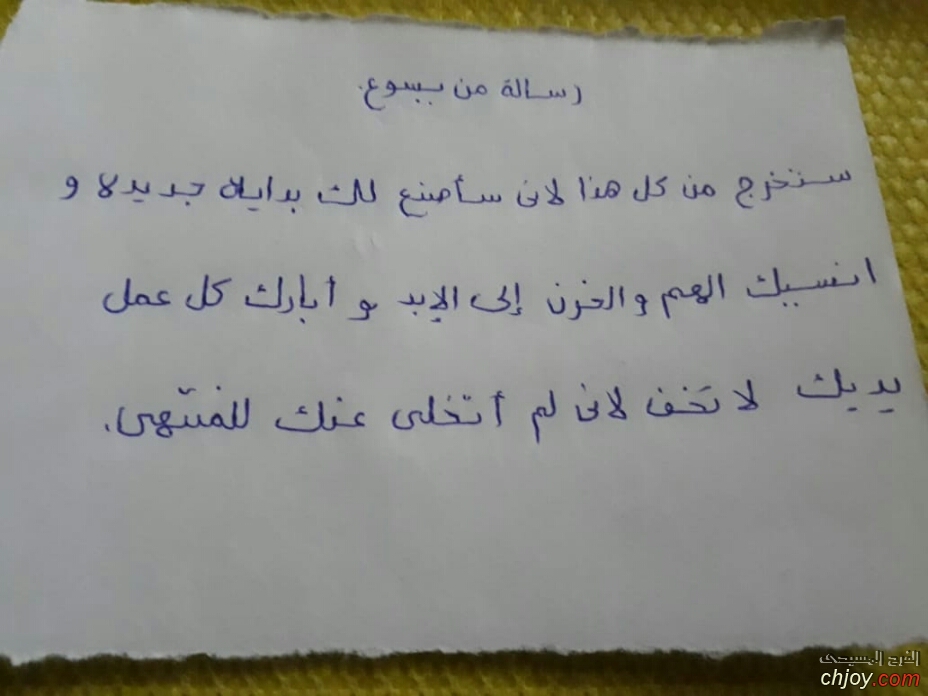 رسالة من يسوع.
ستخرج من كل هذا لانى سأصنع لك بداية جديدة و
انسيك الهم والحزن إلى الابد و أبارك كل عمل
يديك لا تخف لانى لم أتخلى عنك للمنتهى.
الفرح المسيحى
chjoy.com